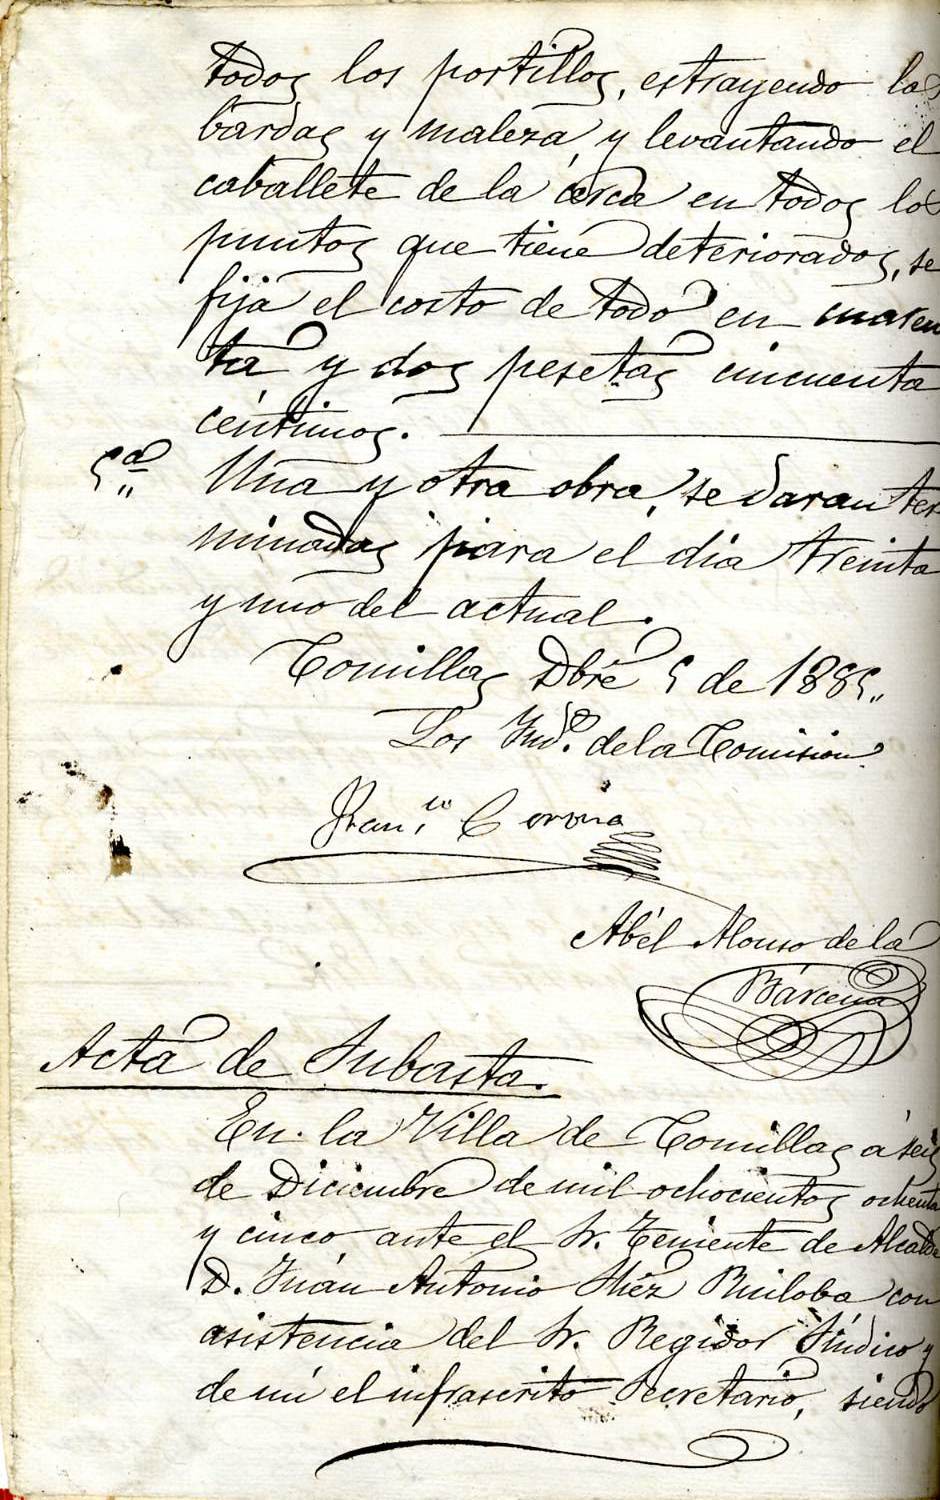 todos los portillos, estrayendo las
bardas y maleza, y levantando el
caballete de la cerca en todos los
puntos que tiene deteriorados, se
fija el costo de todo en cuaren
ta y dos pesetas cincuenta
céntimos.
5ª Una y otra obra, se daran ter
minadas para el dia treinta
y uno del actual.
Comillas Dbre 5 de 1885,,
Los Indº. de la Comision
Franco Corona
Abél Alonso de la
Bárcena
Acta de Subasta.
En la Villa de Comillas á seis
de Diciembre de mil ochocientos ochenta
y cinco ante el Sr. Teniente de Alcalde
D. Juán Antonio Ruiloba con
asistencia del Sr. Regidor Síndico y
de mí el infrascrito Secretario, siendo